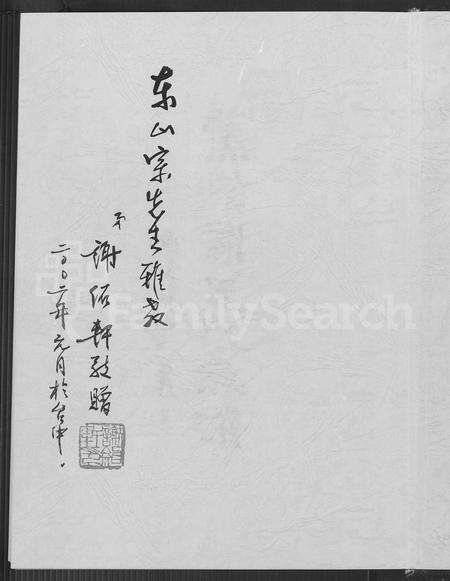 东山宗先生雅教
弟
謝佰軒敬贈
二〇〇二年元月於台中。
FamilySearch